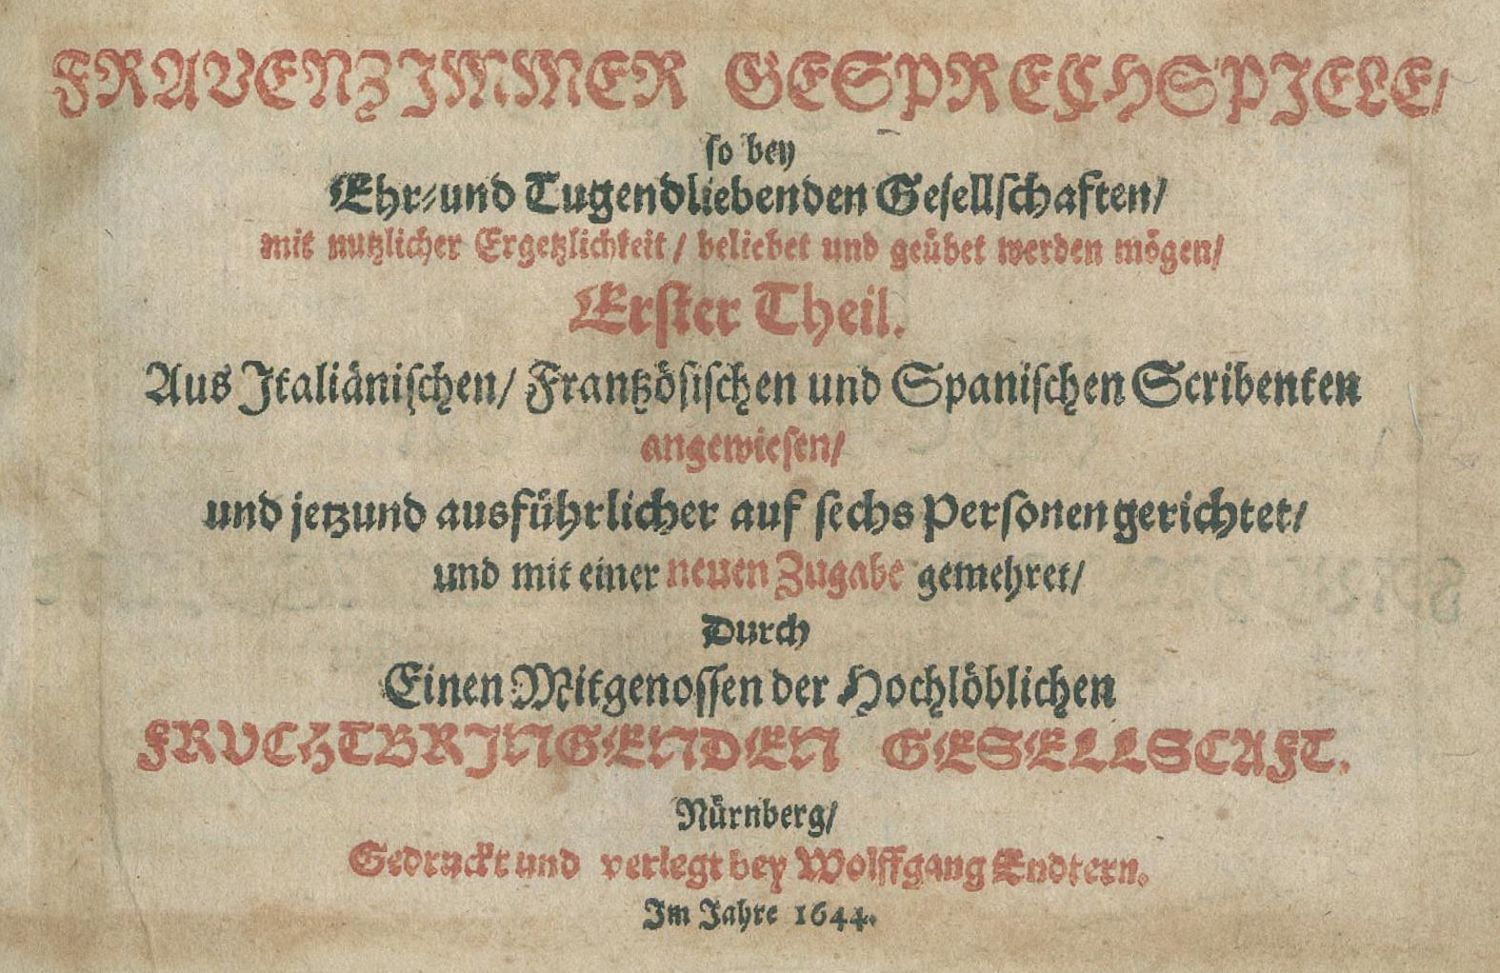 FRAVENZJMMER GESPRECHSPJELE/
so bey
Ehr-und Tugendliebenden Gesellschaften/
mit nutzlicher Ergetzlichkeit/ beliebet und geübet werden mögen/
Erster Theil.
Aus Jtaliänischen/ Frantzösischen und Spanischen Scribenten
angewiesen/
und jetzund ausführlicher auf sechs Personen gerichtet/
und mit einer neuen Zugabe gemehret/
Durch
Einen Mitgenossen der Hochlöblichen
FRVCHTBRJNGENDEN GESELLSCAFT.
Nürnberg/
Gedruckt und verlegt bey Wolffgang Endtern.
Jm Jahre 1644.